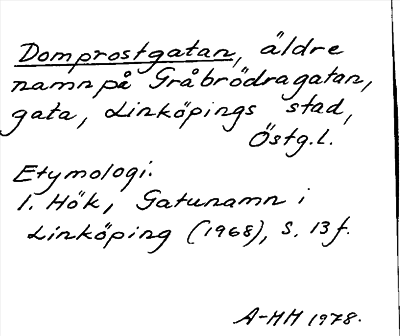 Domprostgatan, äldre
namn på Gråbrödragatan,
gata, Linköpings stad,
Östg.l.
Etymologi.
I. Hök, Gatunamn i
Linköping (1968), S. 13 f.
A-MH 1978.